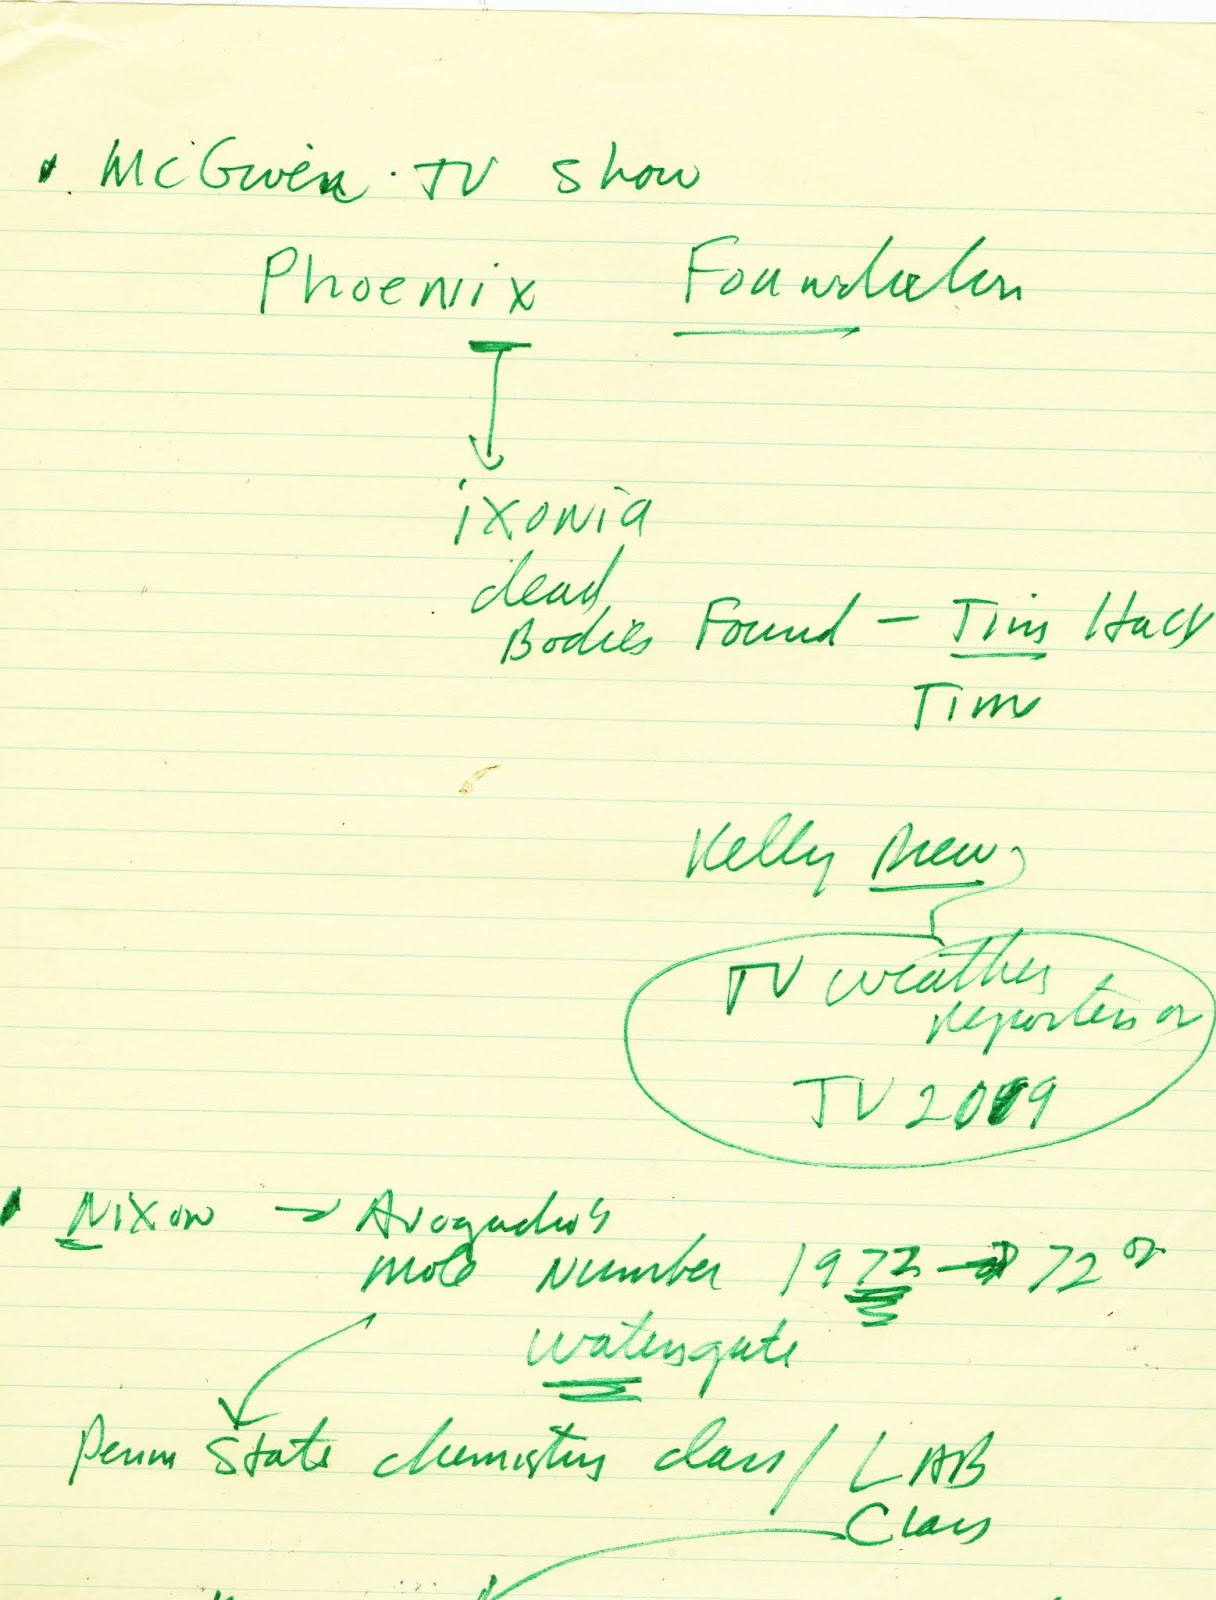 • McGwen. TV show
Phoenix Foundation
ixonia
dead
Bodies Found - Tim Hack
Tim
Kelly Drew
TV weather
reporters or
TV 2009
• Nixon → Avogadro's
mole Number 1972 → 72 or
Watergate
Penn State chemistry class / LAB
Class